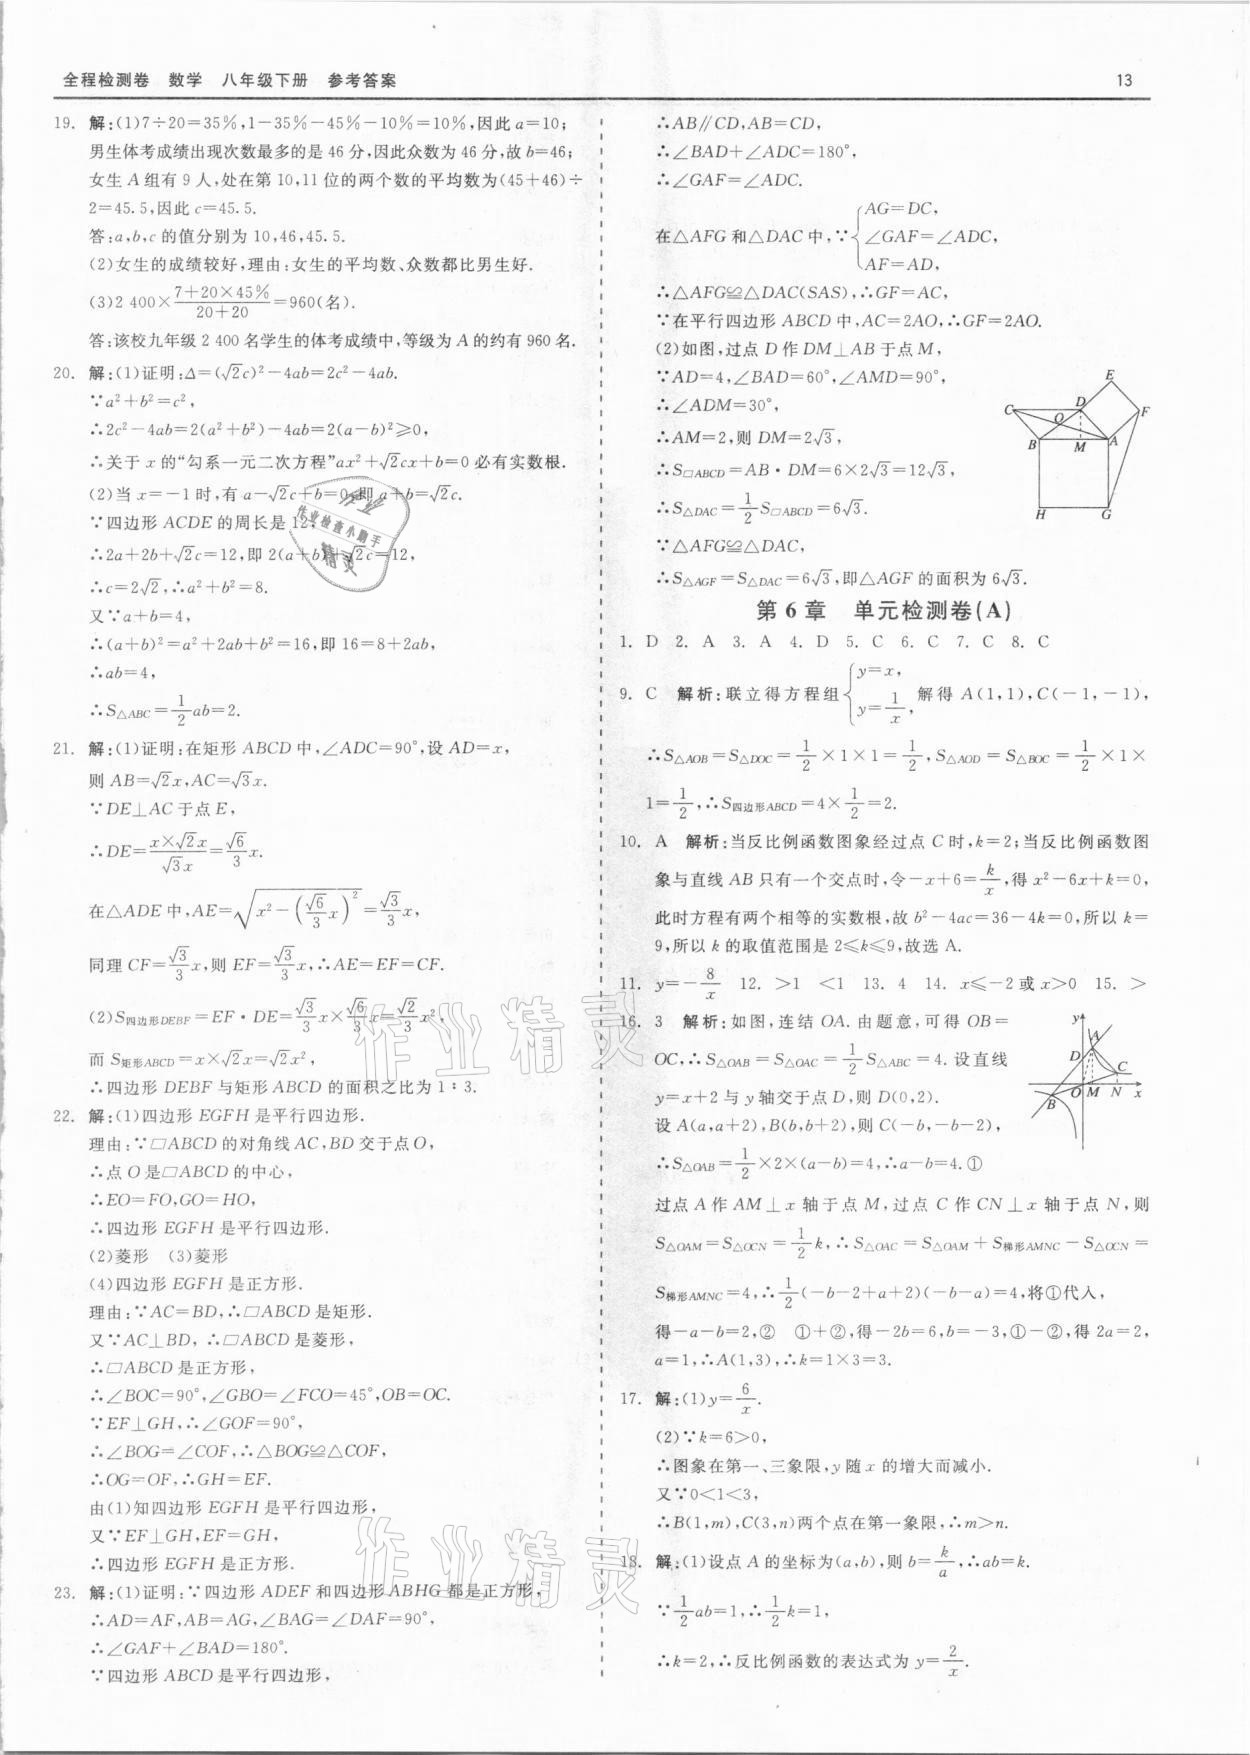 全程检测卷　数学　八年级下册　参考答案　13
19. 解:(1)7÷20=35%,1-35%-45%-10%=10%,因此a=10;
男生体考成绩出现次数最多的是46分,因此众数为46分,故b=46;
女生A组有9人,处在第10,11位的两个数的平均数为(45+46)÷
2=45.5,因此c=45.5.
答:a,b,c的值分别为10,46,45.5.
(2)女生的成绩较好,理由:女生的平均数、众数都比男生好.
(3)2 400×(7+20×45%)/(20+20)=960(名).
答:该校九年级2 400名学生的体考成绩中,等级为A的约有960名.
20. 解:(1)证明:Δ=(√2c)²-4ab=2c²-4ab.
∵a²+b²=c²,
∴2c²-4ab=2(a²+b²)-4ab=2(a-b)²≥0,
∴关于x的“勾系一元二次方程”ax²+√2cx+b=0必有实数根.
(2)当x=-1时,有a-√2c+b=0,即a+b=√2c.
∵四边形ACDE的周长是12,
∴2a+2b+√2c=12,即2(a+b)+√2c=12,
∴c=2√2,∴a²+b²=8.
又∵a+b=4,
∴(a+b)²=a²+2ab+b²=16,即16=8+2ab,
∴ab=4,
∴S△ABC=1/2ab=2.
21. 解:(1)证明:在矩形ABCD中,∠ADC=90°,设AD=x,
则AB=√2x,AC=√3x.
∵DE⊥AC于点E,
∴DE=(x×√2x)/(√3x)=√6/3x.
在△ADE中,AE=√(x²-(√6/3x)²)=√3/3x,
同理CF=√3/3x,则EF=√3/3x,∴AE=EF=CF.
(2)S四边形DEBF=EF·DE=√3/3x×√6/3x=√2/3x²,
而S矩形ABCD=x×√2x=√2x²,
∴四边形DEBF与矩形ABCD的面积之比为1∶3.
22. 解:(1)四边形EGFH是平行四边形.
理由:∵□ABCD的对角线AC,BD交于点O,
∴点O是□ABCD的中心,
∴EO=FO,GO=HO,
∴四边形EGFH是平行四边形.
(2)菱形　(3)菱形
(4)四边形EGFH是正方形.
理由:∵AC=BD,∴□ABCD是矩形.
又∵AC⊥BD,∴□ABCD是菱形,
∴□ABCD是正方形,
∴∠BOC=90°,∠GBO=∠FCO=45°,OB=OC.
∵EF⊥GH,∴∠GOF=90°,
∴∠BOG=∠COF,∴△BOG≌△COF,
∴OG=OF,∴GH=EF.
由(1)知四边形EGFH是平行四边形,
又∵EF⊥GH,EF=GH,
∴四边形EGFH是正方形.
23. 解:(1)证明:∵四边形ADEF和四边形ABHG都是正方形,
∴AD=AF,AB=AG,∠BAG=∠DAF=90°,
∴∠GAF+∠BAD=180°.
∵四边形ABCD是平行四边形,
∴AB∥CD,AB=CD,
∴∠BAD+∠ADC=180°,
∴∠GAF=∠ADC.
在△AFG和△DAC中,∵{AG=DC,
∠GAF=∠ADC,
AF=AD,
∴△AFG≌△DAC(SAS),∴GF=AC,
∵在平行四边形ABCD中,AC=2AO,∴GF=2AO.
(2)如图,过点D作DM⊥AB于点M,
∵AD=4,∠BAD=60°,∠AMD=90°,
∴∠ADM=30°,
∴AM=2,则DM=2√3,
∴S□ABCD=AB·DM=6×2√3=12√3,
∴S△DAC=1/2S□ABCD=6√3.
∵△AFG≌△DAC,
∴S△AGF=S△DAC=6√3,即△AGF的面积为6√3.
E
C　O　D　F
B　M　A
H　G
第6章　单元检测卷(A)
1. D　2. A　3. A　4. D　5. C　6. C　7. C　8. C
9. C　解析:联立得方程组{y=x, y=1/x, 解得A(1,1),C(-1,-1),
∴S△AOB=S△DOC=1/2×1×1=1/2,S△AOD=S△BOC=1/2×1×
1=1/2,∴S四边形ABCD=4×1/2=2.
10. A　解析:当反比例函数图象经过点C时,k=2;当反比例函数图
象与直线AB只有一个交点时,令-x+6=k/x,得x²-6x+k=0,
此时方程有两个相等的实数根,故b²-4ac=36-4k=0,所以k=
9,所以k的取值范围是2≤k≤9,故选A.
11. y=-8/x　12. >1　<1　13. 4　14. x≤-2或x>0　15. >
16. 3　解析:如图,连结OA.由题意,可得OB=
OC,∴S△OAB=S△OAC=1/2S△ABC=4.设直线
y=x+2与y轴交于点D,则D(0,2).
设A(a,a+2),B(b,b+2),则C(-b,-b-2),
∴S△OAB=1/2×2×(a-b)=4,∴a-b=4.①
y　A　D　C　B　O　M　N　x
过点A作AM⊥x轴于点M,过点C作CN⊥x轴于点N,则
S△OAM=S△OCN=1/2k,∴S△OAC=S△OAM+S梯形AMNC-S△OCN=
S梯形AMNC=4,∴1/2(-b-2+a+2)(-b-a)=4,将①代入,
得-a-b=2,②　①+②,得-2b=6,b=-3,①-②,得2a=2,
a=1,∴A(1,3),∴k=1×3=3.
17. 解:(1)y=6/x.
(2)∵k=6>0,
∴图象在第一、三象限,y随x的增大而减小.
又∵0<1<3,
∴B(1,m),C(3,n)两个点在第一象限,∴m>n.
18. 解:(1)设点A的坐标为(a,b),则b=k/a,∴ab=k.
∵1/2ab=1,∴1/2k=1,
∴k=2,∴反比例函数的表达式为y=2/x.
作业
作业检查小助手
精灵
作业精灵
作业精灵